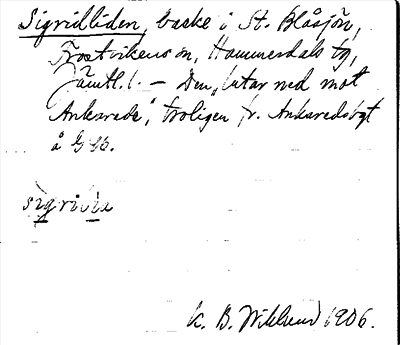 Sigridliden, backe i St. Blåsjön,
Frostvikens sn, Hammerdals tg,
Jämtl. l. – Den „lutar ned mot
Ankarede", troligen fr. Ankaredsbygt
å GSK.
sigrilia
K. B. Wiklund 1906.